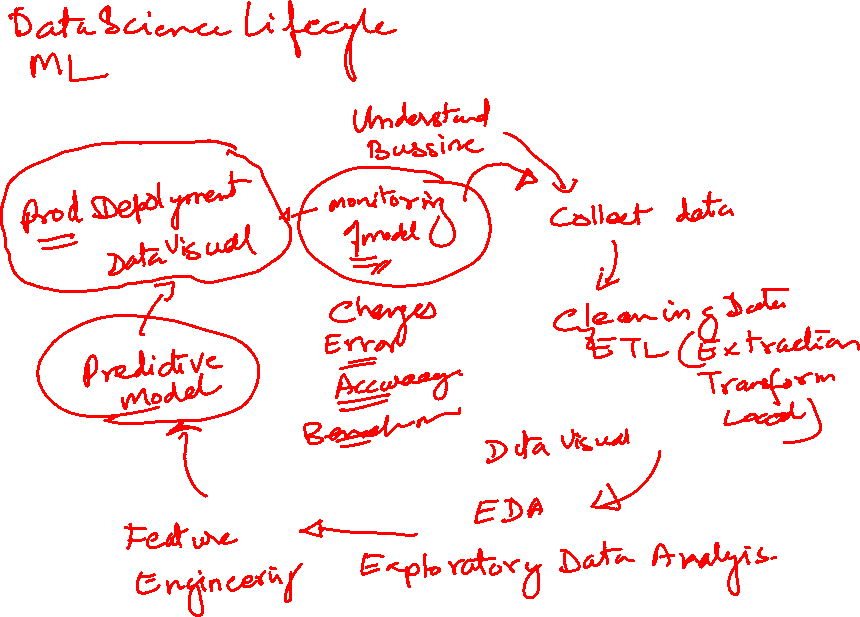 Data Science Lifecyle
ML
Understand
Bussine
Collect data
Cleaning Data
ETL (Extraction
Transform
Load)
Data Visual
EDA
Exploratory Data Analysis.
Feature
Engineering
Predictive
Model
Prod Deployment
Data Visual
monitoring
model
Changes
Error
Accuracy